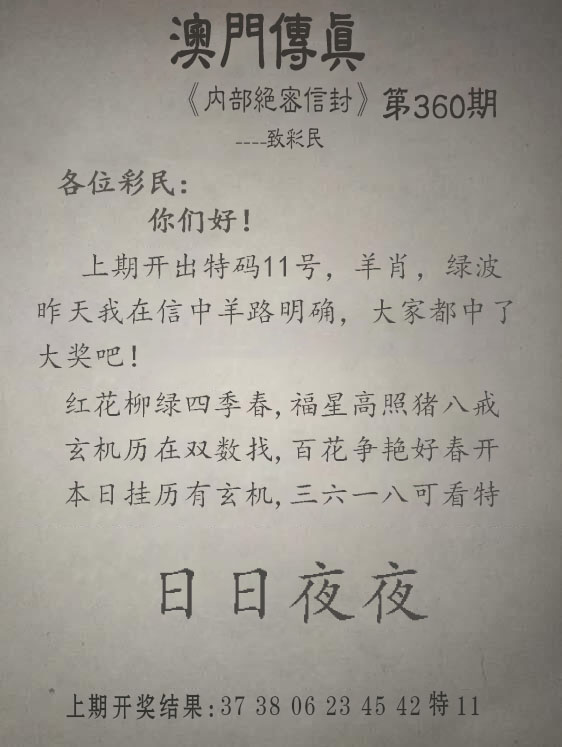 澳門傳眞
《内部絕密信封》第360期
----致彩民
各位彩民:
你们好!
上期开出特码11号，羊肖，绿波
昨天我在信中羊路明确，大家都中了
大奖吧!
红花柳绿四季春,福星高照猪八戒
玄机历在双数找,百花争艳好春开
本日挂历有玄机,三六一八可看特
日日夜夜
上期开奖结果:37 38 06 23 45 42 特 11